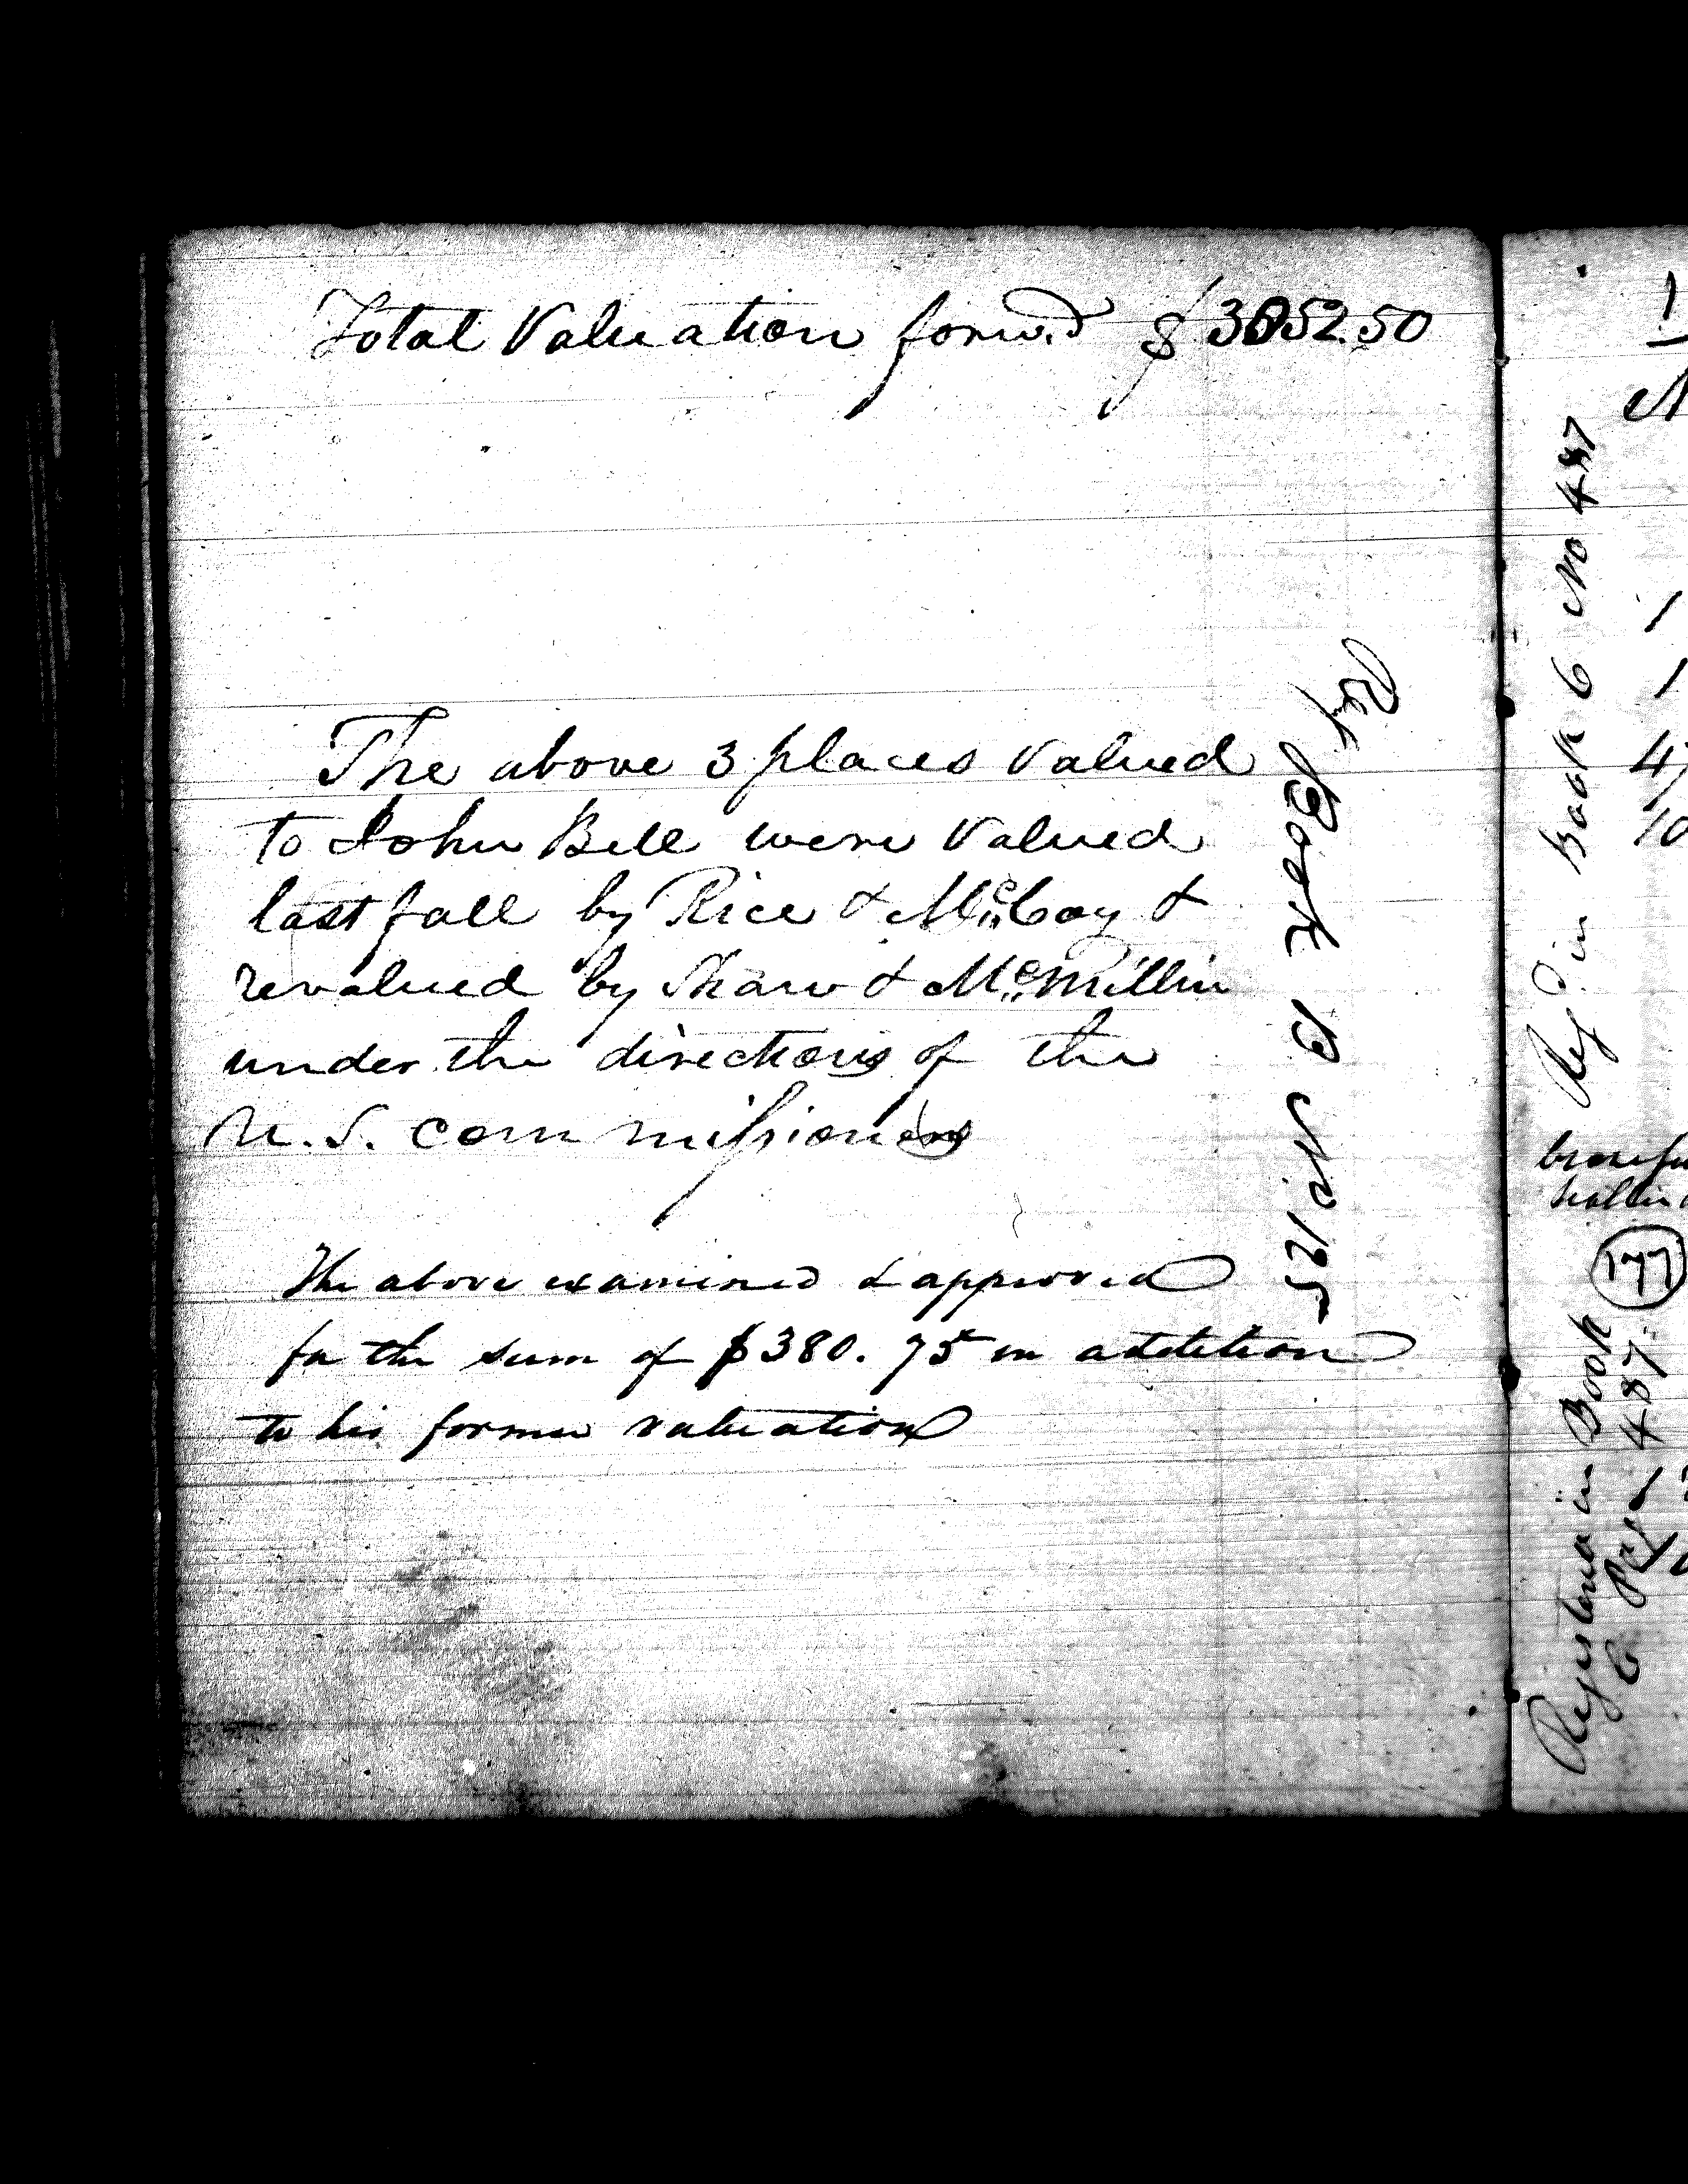 Total Valuation forw.d $3052.50
The above 3 places valued
to John Bell were valued
last fall by Rice & McCoy &
revalued by Shaw & McMillin
under the directions of the
U.S. commissioners
The above examined & approved
for the sum of $380.75 in addition
to his former valuation
Reg Book B No 125
Reg.d in Book 6 No 487
Registered in Book
6 Pg 487
177
1
1
1
10